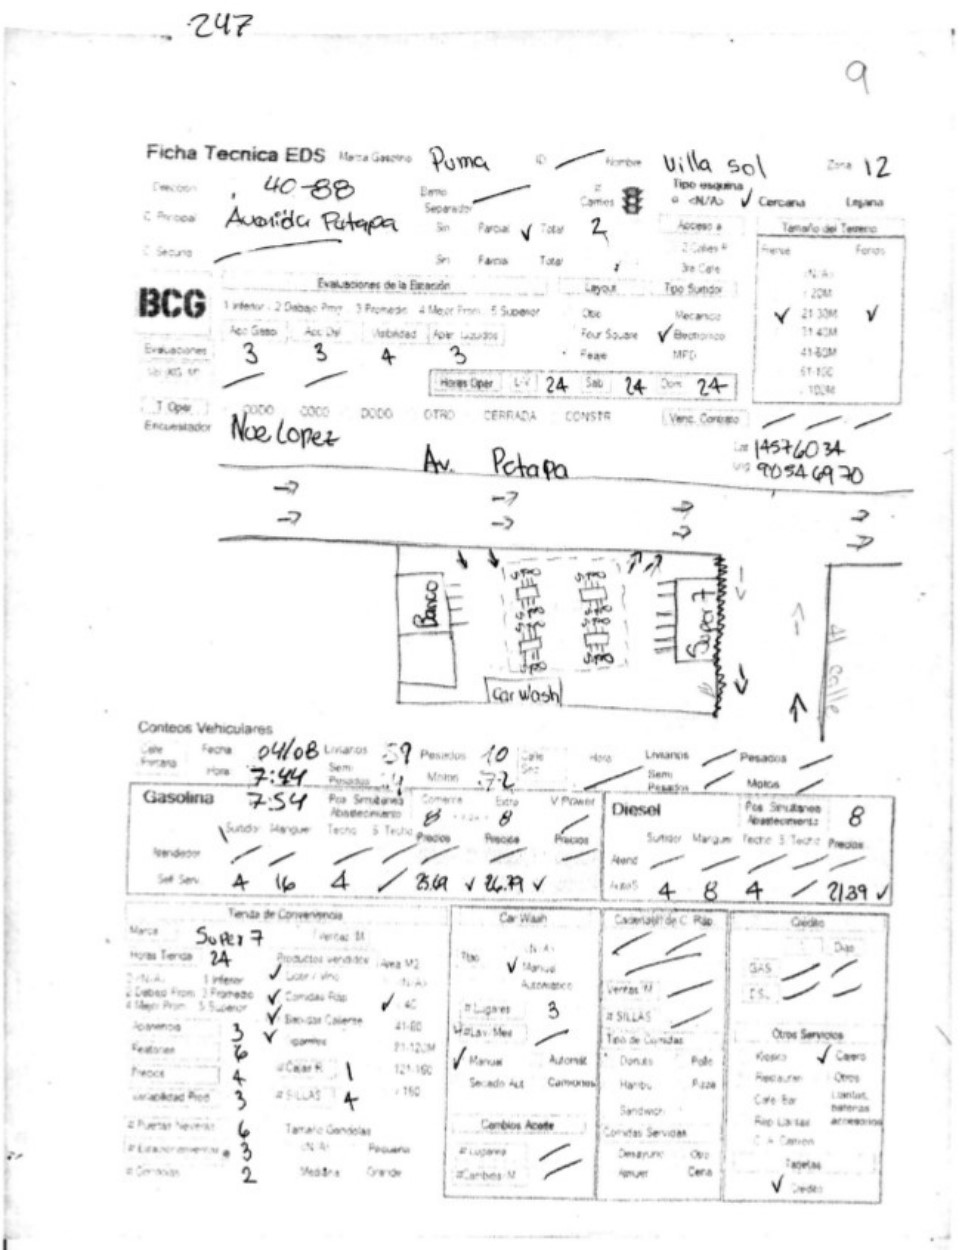 247
9
Ficha Tecnica EDS Marca Gasolina Puma ID Nombre Villa sol Zona 12
Direccion 40-88 # Carriles Tipo esquina
<N/A> Cercana Lejana
C. Principal Avenida Petapa Separador Sin Parcial Total 2 Acceso a Tamaño del Terreno
Frente Fondo
C. Secund Sin Parcial Total 3ra Calle <N/A>
BCG Evaluaciones de la Estación Layout Tipo Surtidor 20M
1 Inferior 2 Debajo Prom 3 Promedio 4 Mejor Prom 5 Superior Otro Mecanico 21-30M
Visibilidad Four Square Electronico 31-40M
Evaluaciones 3 3 4 3 MPD 41-60M
61-100
Horas Oper L-V 24 Sab 24 Dom 24 100M
T. Oper CODO COCO DODO OTRO CERRADA CONSTR Venc. Contrato
Encuestador Noe Lopez
14576034
90546970
Av. Petapa
Banco
Super 7
Car Wash
41 calle
Conteos Vehiculares
Calle Fecha 04/08 Livianos 59 Pesados 10 Calle Hora Livianos Pesados
Hora 7:44 Semi Pesados Motos 72 Semi Pesados Motos
Gasolina 7:54 Pos Simultanea Abastecimiento 8 Extra 8 V Power Diesel Pos Simultanea Abastecimiento 8
Surtidor Manguer Techo S. Techo Precios Precios Precios Surtidor Manguer Techo S. Techo Precios
Atendedor Atend
Self Serv. 4 16 4 25.69 26.79 AutoS 4 8 4 21.39
Tienda de Conveniencia Car Wash Credito
Marca Super 7 Ventas M <N/A> Dias
Horas Tienda 24 Productos vendidos Area M2 Tipo Manual GAS
<N/A> 1 Inferior Licor / Vino <N/A> Automatico Ventas M DSL
2 Debajo Prom 3 Promedio Comidas Rap 40 # Lugares 3 # SILLAS
4 Mejor Prom 5 Superior Bebidas Caliente 41-80 # Lav. Mes Tipo de Comidas Otros Servicios
Apariencia 3 Cigarrillos 81-120M Manual Automat Donuts Pollo Kiosko Cajero
6 # Cajas R 1 121-160 Secado Aut Camiones Hambu Pizza Restauran Otros
Precios 4 # SILLAS 4 160 Sandwich Cafe Bar Llantas, baterias accesorios
Variabilidad Prod 3 Cambios Aceite Comidas Servidas Rep Llantas
# Puertas Neveras 6 Tamaño Gondolas # Lugares Desayuno Otro
# Estacionamientos 3 <N/A> Pequeña # Cambios M Almuer Cena Tarjetas
# Gondolas 2 Mediana Grande Credito